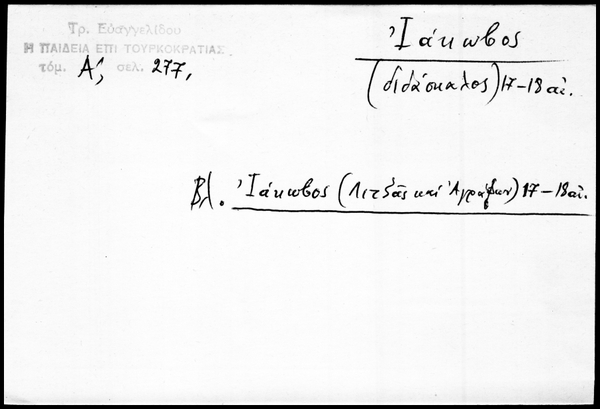 Τρ. Εὐαγγελίδου
Η ΠΑΙΔΕΙΑ ΕΠΙ ΤΟΥΡΚΟΚΡΑΤΙΑΣ
τόμ. Α΄, σελ. 277,
Ἰάκωβος
(διδάσκαλος) 17-18 αἰ.
Βλ. Ἰάκωβος (Λιτζᾶς καί Ἀγράφων) 17-18 αἰ.